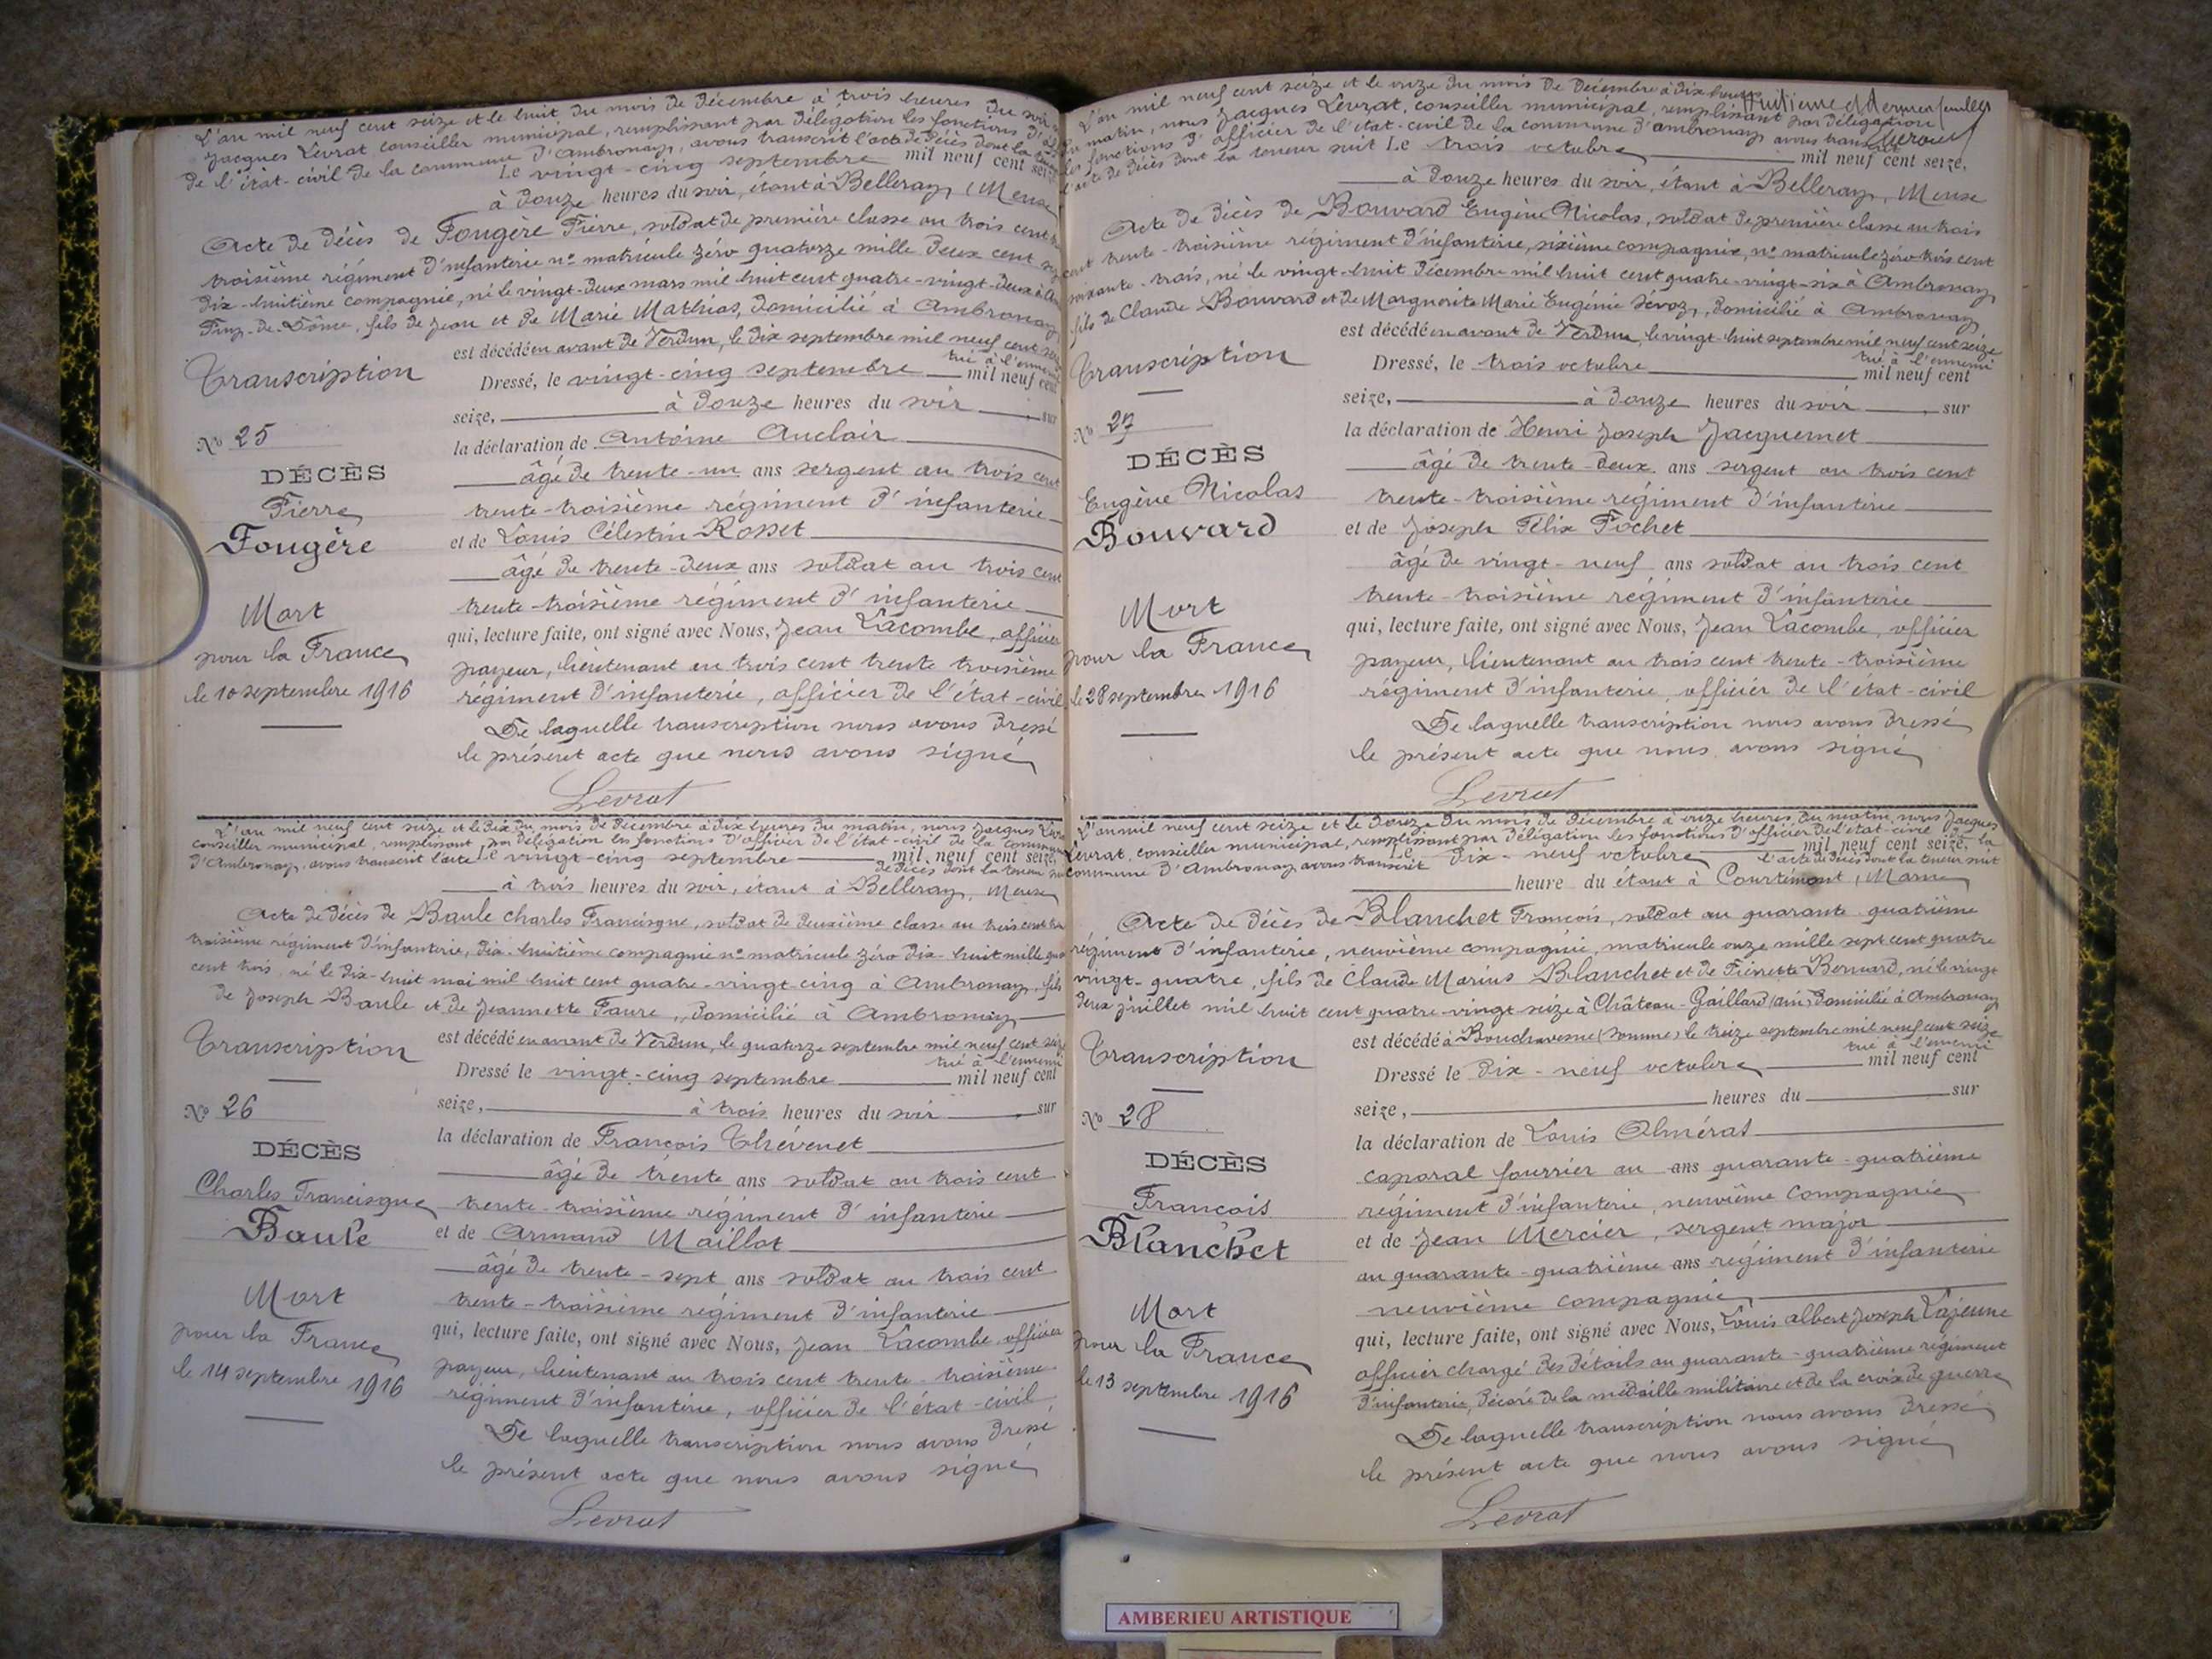 L'an mil neuf cent seize et le huit du mois de décembre à trois heures du soir
Jacques Levrat, conseiller municipal, remplissant par délégation les fonctions d'
de l'état-civil de la commune d'Ambronay, avons transcrit l'acte de décès dont la
Le vingt-cinq septembre mil neuf cent seize
à douze heures du soir, étant à Belleray, (Meuse
Acte de décès de Fougère Pierre, soldat de première classe au trois cent
troisième régiment d'infanterie no matricule zéro quatorze mille deux cent
dix-huitième compagnie, né le vingt-deux mars mil huit cent quatre-vingt-deux à
Puy-de-Dôme, fils de Jean et de Marie Mathias, domicilié à Ambronay
Transcription
est décédé en avant de Verdun, le dix septembre mil neuf cent seize
tué à l'ennemi
Dressé, le vingt-cinq septembre mil neuf cent
seize, à douze heures du soir, sur
No 25
la déclaration de Antoine Auclair
DÉCÈS
âgé de trente-un ans sergent au trois cent
Pierre
trente-troisième régiment d'infanterie
Fougère
et de Louis Célestin Rosset
âgé de trente-deux ans soldat au trois cent
Mort
trente-troisième régiment d'infanterie
pour la France
qui, lecture faite, ont signé avec Nous, Jean Lacombe, officier
payeur, lieutenant au trois cent trente troisième
le 10 septembre 1916
régiment d'infanterie, officier de l'état-civil
De laquelle transcription nous avons dressé
le présent acte que nous avons signé
Levrat
L'an mil neuf cent seize et le dix du mois de décembre à dix heures du matin, nous Jacques
conseiller municipal, remplissant par délégation les fonctions d'officier de l'état-civil de la commune
d'Ambronay, avons transcrit l'acte Le vingt-cinq septembre mil neuf cent seize,
de décès dont la teneur
à trois heures du soir, étant à Belleray, Meuse
Acte de décès de Baule Charles Francisque, soldat de deuxième classe au trois cent
troisième régiment d'infanterie, dix-huitième compagnie no matricule zéro dix-huit mille
cent trois, né le dix-huit mai mil huit cent quatre-vingt-cinq à Ambronay, fils
de Joseph Baule et de Jeannette Faure, domicilié à Ambronay
Transcription
est décédé en avant de Verdun, le quatorze septembre mil neuf cent seize
tué à l'ennemi
Dressé le vingt-cinq septembre mil neuf cent
seize, à trois heures du soir, sur
No 26
la déclaration de François Thévenet
DÉCÈS
âgé de trente ans soldat au trois cent
Charles Francisque
trente-troisième régiment d'infanterie
Baule
et de Armand Maillot
âgé de trente-sept ans soldat au trois cent
Mort
trente-troisième régiment d'infanterie
pour la France
qui, lecture faite, ont signé avec Nous, Jean Lacombe officier
le 14 septembre 1916
payeur, lieutenant au trois cent trente-troisième
régiment d'infanterie, officier de l'état-civil
De laquelle transcription nous avons dressé
le présent acte que nous avons signé
Levrat
L'an mil neuf cent seize et le onze du mois de décembre à dix heures
Huitième et dernier feuillet
du matin, nous Jacques Levrat, conseiller municipal, remplissant par délégation
les fonctions d'officier de l'état-civil de la commune d'Ambronay avons transcrit
l'acte de décès dont la teneur suit Le trois octobre mil neuf cent seize,
à douze heures du soir, étant à Belleray, Meuse
Acte de décès de Bouvard Eugène Nicolas, soldat de première classe au trois
cent trente-troisième régiment d'infanterie, sixième compagnie, no matricule zéro trois cent
soixante-trois, né le vingt-huit décembre mil huit cent quatre-vingt-six à Ambronay
fils de Claude Bouvard et de Marguerite Marie Eugénie Sévoz, domicilié à Ambronay
est décédé en avant de Verdun, le vingt-huit septembre mil neuf cent seize
tué à l'ennemi
Transcription
Dressé, le trois octobre mil neuf cent
seize, à douze heures du soir, sur
No 27
la déclaration de Henri Joseph Jacquemet
DÉCÈS
âgé de trente-deux ans sergent au trois cent
Eugène Nicolas
trente-troisième régiment d'infanterie
Bouvard
et de Joseph Félix Pochet
âgé de vingt-neuf ans soldat au trois cent
Mort
trente-troisième régiment d'infanterie
pour la France
qui, lecture faite, ont signé avec Nous, Jean Lacombe, officier
payeur, lieutenant au trois cent trente-troisième
le 28 septembre 1916
régiment d'infanterie, officier de l'état-civil
De laquelle transcription nous avons dressé
le présent acte que nous avons signé
Levrat
L'an mil neuf cent seize et le douze du mois de décembre à onze heures du matin, nous Jacques
Levrat, conseiller municipal, remplissant par délégation les fonctions d'officier de l'état-civil de la
commune d'Ambronay avons transcrit Le dix-neuf octobre mil neuf cent seize,
l'acte de décès dont la teneur suit
heure du étant à Courtémont, Marne
Acte de décès de Blanchet François, soldat au quarante quatrième
régiment d'infanterie, neuvième compagnie, matricule onze mille sept cent quatre
vingt-quatre, fils de Claude Marius Blanchet et de Pierrette Bernard, né le vingt
deux juillet mil huit cent quatre-vingt-seize à Château-Gaillard (Ain) domicilié à Ambronay
est décédé à Bouchavesne (Somme) le treize septembre mil neuf cent seize
tué à l'ennemi
Transcription
Dressé le dix-neuf octobre mil neuf cent
seize, heures du sur
No 28
la déclaration de Louis Alméras
DÉCÈS
caporal fourrier au ans quarante-quatrième
François
régiment d'infanterie, neuvième compagnie
Blanchet
et de Jean Mercier, sergent major
au quarante-quatrième ans régiment d'infanterie
Mort
neuvième compagnie
pour la France
qui, lecture faite, ont signé avec Nous, Louis Albert Joseph Lajeune
le 13 septembre 1916
officier chargé des détails au quarante-quatrième régiment
d'infanterie, décoré de la médaille militaire et de la croix de guerre
De laquelle transcription nous avons dressé
le présent acte que nous avons signé
Levrat
AMBERIEU ARTISTIQUE